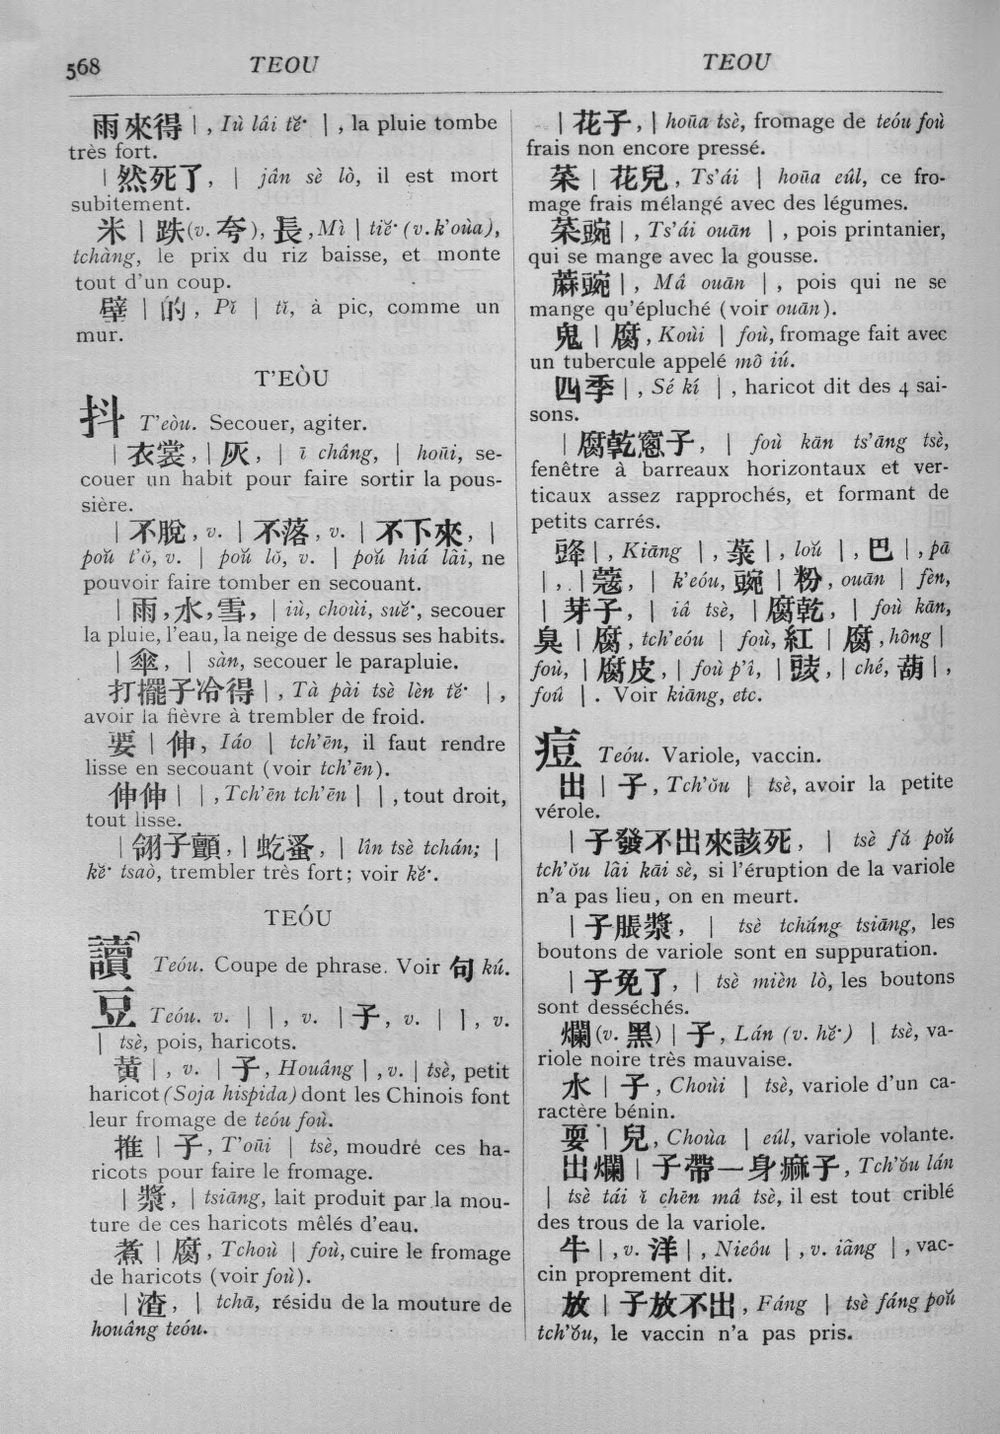 568 TEOU TEOU
雨來得 | , Iù lâi tĕ· | , la pluie tombe
très fort.
| 然死了, | jân sè lò, il est mort
subitement.
米 | 跌 (v. 夸), 長, Mì | tiĕ· (v. k'oùa),
tchàng, le prix du riz baisse, et monte
tout d'un coup.
壁 | 的, Pĭ | tĭ, à pic, comme un
mur.
T'EÒU
抖 T'eòu. Secouer, agiter.
| 衣裳, | 灰, | ī châng, | hoūi, se-
couer un habit pour faire sortir la pous-
sière.
| 不脫, v. | 不落, v. | 不下來, |
poŭ t'ŏ, v. | poŭ lŏ, v. | poŭ hiá lâi, ne
pouvoir faire tomber en secouant.
| 雨, 水, 雪, | iù, choùi, suĕ·, secouer
la pluie, l'eau, la neige de dessus ses habits.
| 傘, | sàn, secouer le parapluie.
打擺子冷得 | , Tà pài tsè lèn tĕ· | ,
avoir la fièvre à trembler de froid.
要 | 伸, Iáo | tch'ēn, il faut rendre
lisse en secouant (voir tch'ēn).
伸伸 | | , Tch'ēn tch'ēn | | , tout droit,
tout lisse.
| 翎子顫, | 虼蚤, | lîn tsè tchán; |
kĕ· tsaò, trembler très fort; voir kĕ·.
TEÓU
讀 Teóu. Coupe de phrase. Voir 句 kú.
豆 Teóu. v. | | , v. | 子, v. | | , v.
| tsè, pois, haricots.
黃 | , v. | 子, Houâng | , v. | tsè, petit
haricot (Soja hispida) dont les Chinois font
leur fromage de teóu foù.
推 | 子, T'oūi | tsè, moudré ces ha-
ricots pour faire le fromage.
| 漿, | tsiāng, lait produit par la mou-
ture de ces haricots mêlés d'eau.
煮 | 腐, Tchoù | foù, cuire le fromage
de haricots (voir foù).
| 渣, | tchā, résidu de la mouture de
houâng teóu.
| 花子, | hoūa tsè, fromage de teóu foù
frais non encore pressé.
菜 | 花兒, Ts'ái | hoūa eûl, ce fro-
mage frais mélangé avec des légumes.
菜豌 | , Ts'ái ouān | , pois printanier,
qui se mange avec la gousse.
蔴豌 | , Mâ ouān | , pois qui ne se
mange qu'épluché (voir ouān).
鬼 | 腐, Koùi | foù, fromage fait avec
un tubercule appelé mô iú.
四季 | , Sé kí | , haricot dit des 4 sai-
sons.
| 腐乾窻子, | foù kān ts'āng tsè,
fenêtre à barreaux horizontaux et ver-
ticaux assez rapprochés, et formant de
petits carrés.
| , Kiāng | , | , loŭ | , 巴 | , pā
| , | 蔻, | k'eóu, 豌 | 粉, ouān | fèn,
| 芽子, | iâ tsè, | 腐乾, | foù kān,
臭 | 腐, tch'eóu | foù, 紅 | 腐, hông |
foù, | 腐皮, | foù p'î, | 豉, | ché, 葫 | ,
foû | . Voir kiāng, etc.
痘 Teóu. Variole, vaccin.
出 | 子, Tch'ŏu | tsè, avoir la petite
vérole.
| 子發不出來該死, | tsè fă poŭ
tch'ŏu lâi kāi sè, si l'éruption de la variole
n'a pas lieu, on en meurt.
| 子脹漿, | tsè tcháng tsiāng, les
boutons de variole sont en suppuration.
| 子免了, | tsè mièn lò, les boutons
sont desséchés.
爛 (v. 黑) | 子, Lán (v. hĕ·) | tsè, va-
riole noire très mauvaise.
水 | 子, Choùi | tsè, variole d'un ca-
ractère bénin.
耍 | 兒, Choùa | eûl, variole volante.
出爛 | 子帶一身痲子, Tch'ŏu lán
| tsè tái ĭ chēn mâ tsè, il est tout criblé
des trous de la variole.
牛 | , v. 洋 | , Nieôu | , v. iâng | , vac-
cin proprement dit.
放 | 子放不出, Fáng | tsè fáng poŭ
tch'ŏu, le vaccin n'a pas pris.